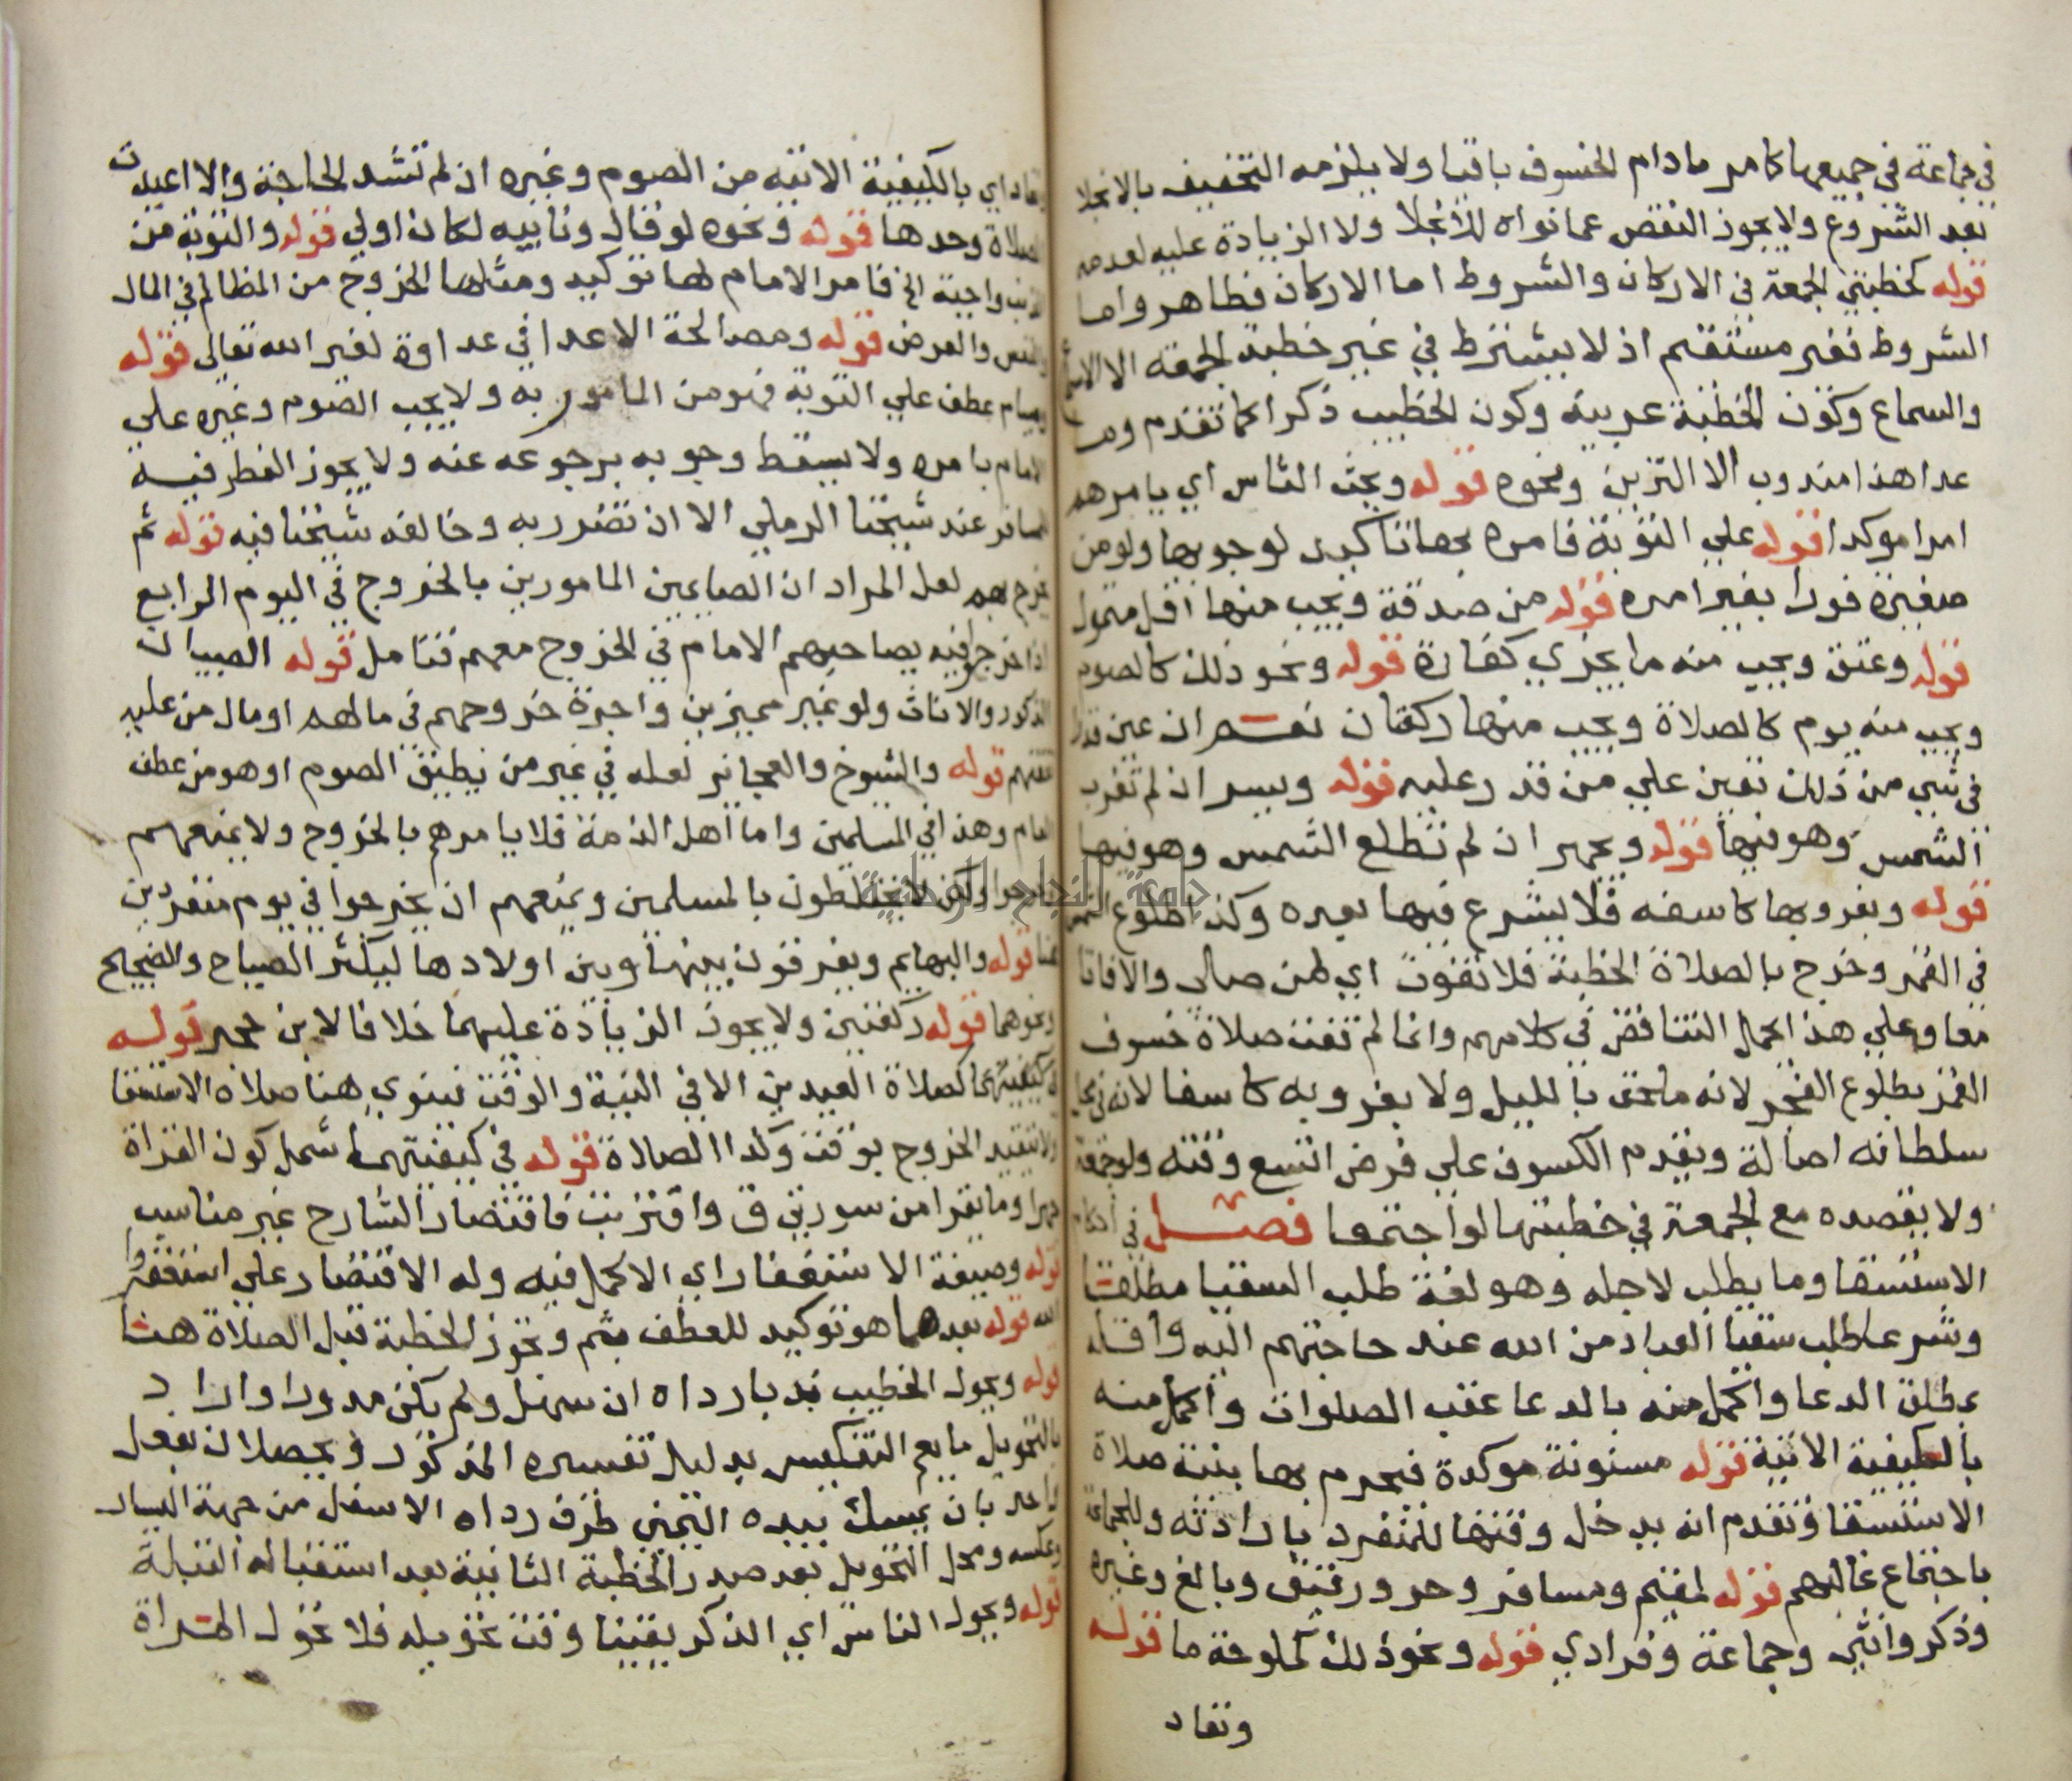 في جماعة في جميعها كامر مادام الخسوف باقيا ولا يلزمه التخفيف بالانجلا
بعد الشروع ولا يجوز النقص عما نواه للانجلا ولا الزيادة عليه لعدمه
قوله كخطبتي الجمعة في الاركان والشروط اما الاركان فظاهر واما
الشروط فغير مستقيم اذ لا يشترط في غير خطبة الجمعه الا الاسماع
والسماع وكون الخطبة عربية وكون الخطيب ذكرا كما تقدم وما
عدا هذا مندوب الا التزين ونحوه قوله ويحث الناس اي يامرهم
امرا موكدا قوله علي التوبة فامره بها تاكيد لوجوبها ولو من
صغيرة فورا بغير امره قوله من صدقة ويجب منها اقل متمول
قوله وعتق ويجب منه ما يجزي كفارة قوله ونحو ذلك كالصوم
ويجب منه يوم كالصلاة ويجب منها ركعتان نعم ان عين قدرا
في شي من ذلك تعين علي من قدر عليه قوله ويسر ان لم تغرب
الشمس وهو فيها قوله ويجهر ان لم تطلع الشمس وهو فيها
قوله وبغروبها كاسفه فلا يشرع فيها بعده وكذا طلوع الشمس
في القمر وخرج بالصلاة الخطبة فلا تفوت اي لمن صلى والا فاتا
معا وعلي هذا يحمل التناقض في كلامهم وانما لم تفت صلاة خسوف
القمر بطلوع الفجر لانه ملحق بالليل ولا بغروبه كاسفا لانه في محل
سلطانه اصالة ويقدم الكسوف علي فرض اتسع وقته ولو جمعة
ولا يقصده مع الجمعة في خطبتها لو اجتمعا فصل في احكام
الاستسقا وما يطلب لاجله وهو لغة طلب السقيا مطلقا
وشرعا طلب سقيا العباد من الله عند حاجتهم اليه واقله
مطلق الدعا واكمل منه بالدعا عقب الصلوات واكمل منه
بالكيفية الاتية قوله مسنونة موكدة فيحرم بها بنية صلاة
الاستسقا وتقدم انه يدخل وقتها للمنفرد بارادته وللجماعة
باجتماع غالبهم قوله لمقيم ومسافر وحر ورقيق وبالغ وغيره
وذكر وانثي وجماعة وفرادي قوله ونحو ذلك كملوحة ما قوله
وتعاد
وتعاد اي بالكيفية الاتيه من الصوم وغيره ان لم تشتد الحاجة والا اعيدت
الصلاة وحدها قوله ونحوه لو قال وتاييه لكان اولي قوله والتوبة من
الذنب واجبة الخ فامر الامام لها توكيد ومثلها الخروج من المظالم في المال
والنفس والعرض قوله ومصالحة الاعدا في عداوة لغير الله تعالى قوله
وصيام عطف علي التوبة فهو من المامور به ولا يجب الصوم وغيره علي
الامام بامره ولا يسقط وجوبه برجوعه عنه ولا يجوز الفطر فيه
لمسافر عند شيخنا الرملي الا ان تضرر به وخالفه شيخنا فيه قوله ثم
يخرج بهم لعل المراد ان الصايمين المامورين بالخروج في اليوم الرابع
اذا خرجوا فيه يصاحبهم الامام في الخروج معهم فتامل قوله الصبيان
الذكور والاناث ولو غير مميزين واجرة خروجهم في مالهم او مال من عليه
نفقتهم قوله والشيوخ والعجايز لعله في غير من يطيق الصوم او هو من عطف
العام وهذا في المسلمين واما اهل الذمة فلا يامرهم بالخروج ولا يمنعهم
ولكن لا يختلطون بالمسلمين ويمنعهم ان يخرجوا في يوم منفردين
عنا قوله والبهايم ويفرقون بينها وبين اولادها ليكثر الصياح والضجيج
ونحوهما قوله ركعتين ولا يجوز الزيادة عليهما خلافا لابن حجر قوله
في كيفيتهما كصلاة العيدين الا في النية والوقت فينوي هنا صلاه الاستسقا
ولا يتقيد الخروج بوقت وكذا الصلاة قوله في كيفيتهما شمل كون القراة
جهرا وما يقرا من سورتي ق واقتربت فاقتضار الشارح غير مناسب
قوله وصيغة الاستغفار اي الاكمل فيه وله الاقتصار علي استغفروا
الله قوله بعدهما هو توكيد للعطف بثم وتجوز الخطبة قبل الصلاة هنا
قوله ويحول الخطيب ندبا رداه ان سهل ولم يكن مدورا واراد
بالتحويل ما يعم التنكيس بدليل تفسيره المذكور ويحصلان بفعل
واحد بان يمسك بيده اليمني طرف رداه الاسفل من جهة اليسار
وعكسه ومحل التحويل بعد صدر الخطبة الثانية بعد استقباله القبلة
قوله ويحول الناس اي الذكر يقينا وقت تحويله فلا تحول المراة
جامعة النجاح الوطنية